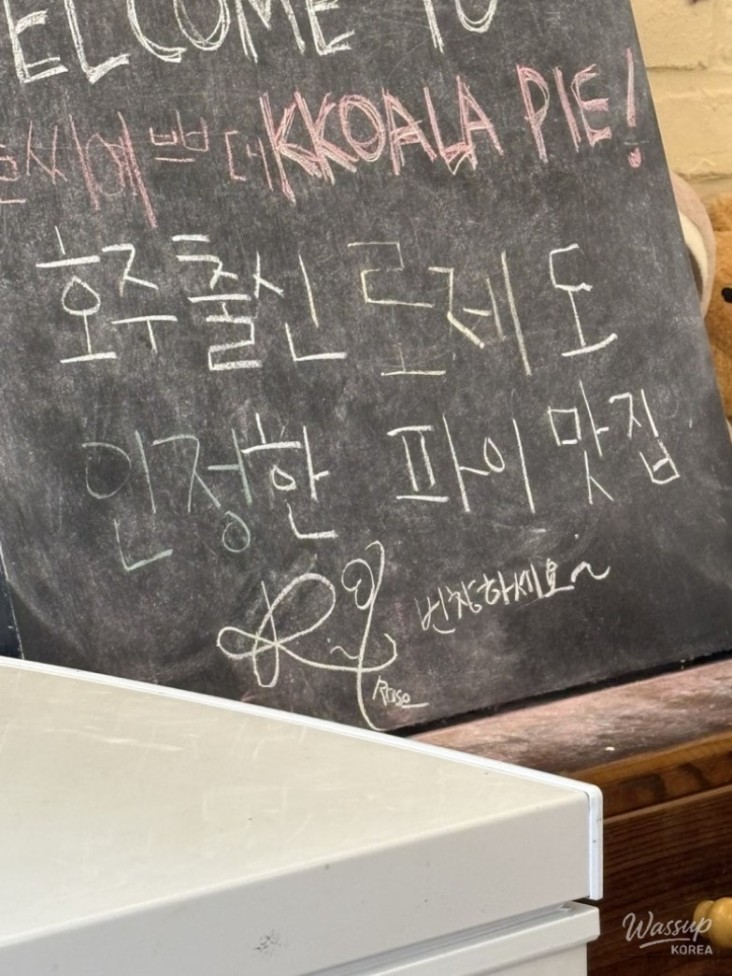 ELCOME TO
씨예쁘데 KKOALA PIE!
호주출신 로제도
인정한 파이 맛집
번창하세요~
Rosé
Wassup
KOREA